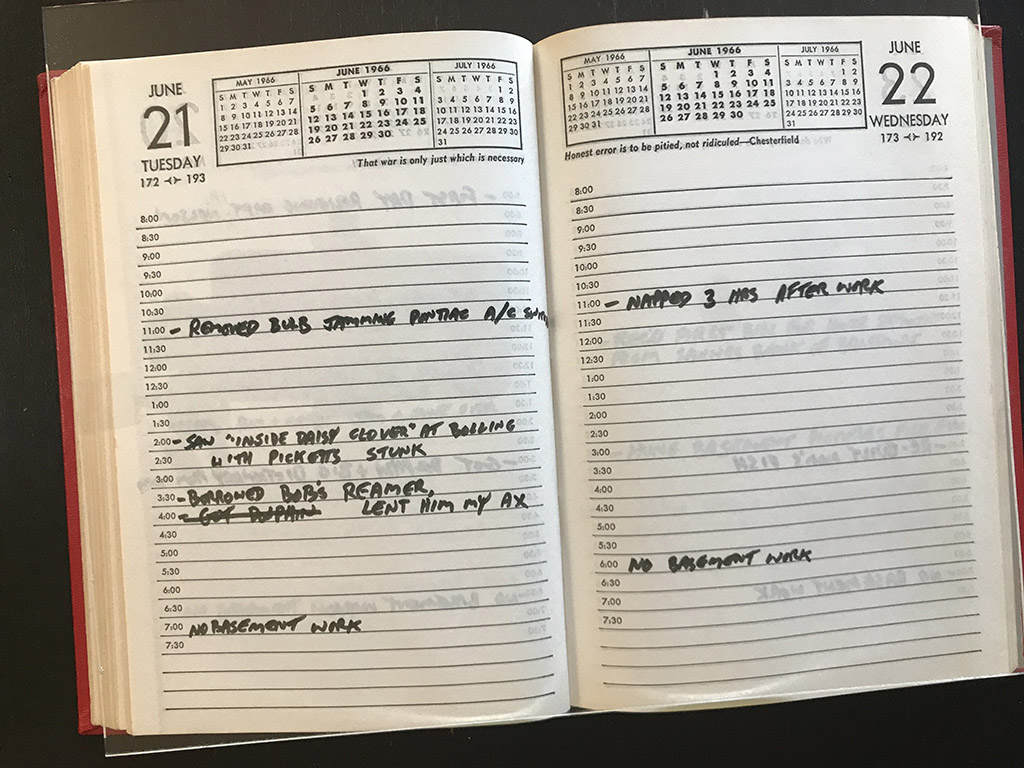 JUNE
21
TUESDAY
172 193
MAY 1966
S M T W T F S
1 2 3 4 5 6 7
8 9 10 11 12 13 14
15 16 17 18 19 20 21
22 23 24 25 26 27 28
29 30 31
JUNE 1966
S M T W T F S
1 2 3 4
5 6 7 8 9 10 11
12 13 14 15 16 17 18
19 20 21 22 23 24 25
26 27 28 29 30
JULY 1966
S M T W T F S
1 2
3 4 5 6 7 8 9
10 11 12 13 14 15 16
17 18 19 20 21 22 23
24 25 26 27 28 29 30
31
That war is only just which is necessary
8:00
8:30
9:00
9:30
10:00
10:30
11:00 - REMOVED BULB JAMMING PONTIAC A/C
11:30
12:00
12:30
1:00
1:30
2:00 - SAW "INSIDE DAISY CLOVER" AT BOLLING
2:30 WITH PICKETTS STUNK
3:00
3:30 - BORROWED BOB'S REAMER,
4:00 - GOT DOLPHIN LENT HIM MY AX
4:30
5:00
5:30
6:00
6:30
7:00 NO BASEMENT WORK
7:30
MAY 1966
S M T W T F S
1 2 3 4 5 6 7
8 9 10 11 12 13 14
15 16 17 18 19 20 21
22 23 24 25 26 27 28
29 30 31
JUNE 1966
S M T W T F S
1 2 3 4
5 6 7 8 9 10 11
12 13 14 15 16 17 18
19 20 21 22 23 24 25
26 27 28 29 30
JULY 1966
S M T W T F S
1 2
3 4 5 6 7 8 9
10 11 12 13 14 15 16
17 18 19 20 21 22 23
24 25 26 27 28 29 30
31
JUNE
22
WEDNESDAY
173 192
Honest error is to be pitied, not ridiculed—Chesterfield
8:00
8:30
9:00
9:30
10:00
10:30
11:00 - NAPPED 3 HRS AFTER WORK
11:30
12:00
12:30
1:00
1:30
2:00
2:30
3:00
3:30
4:00
4:30
5:00
5:30
6:00 NO BASEMENT WORK
6:30
7:00
7:30